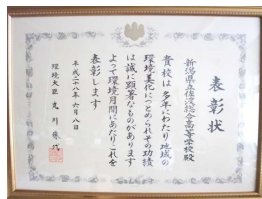 表彰状
新潟県立佐渡総合高等学校殿
貴校は多年にわたり地域の
環境美化につとめられその功績
は誠に顕著なものがあります
よって環境月間にあたりこれを
表彰します
平成二十八年六月八日
環境大臣 丸川珠代